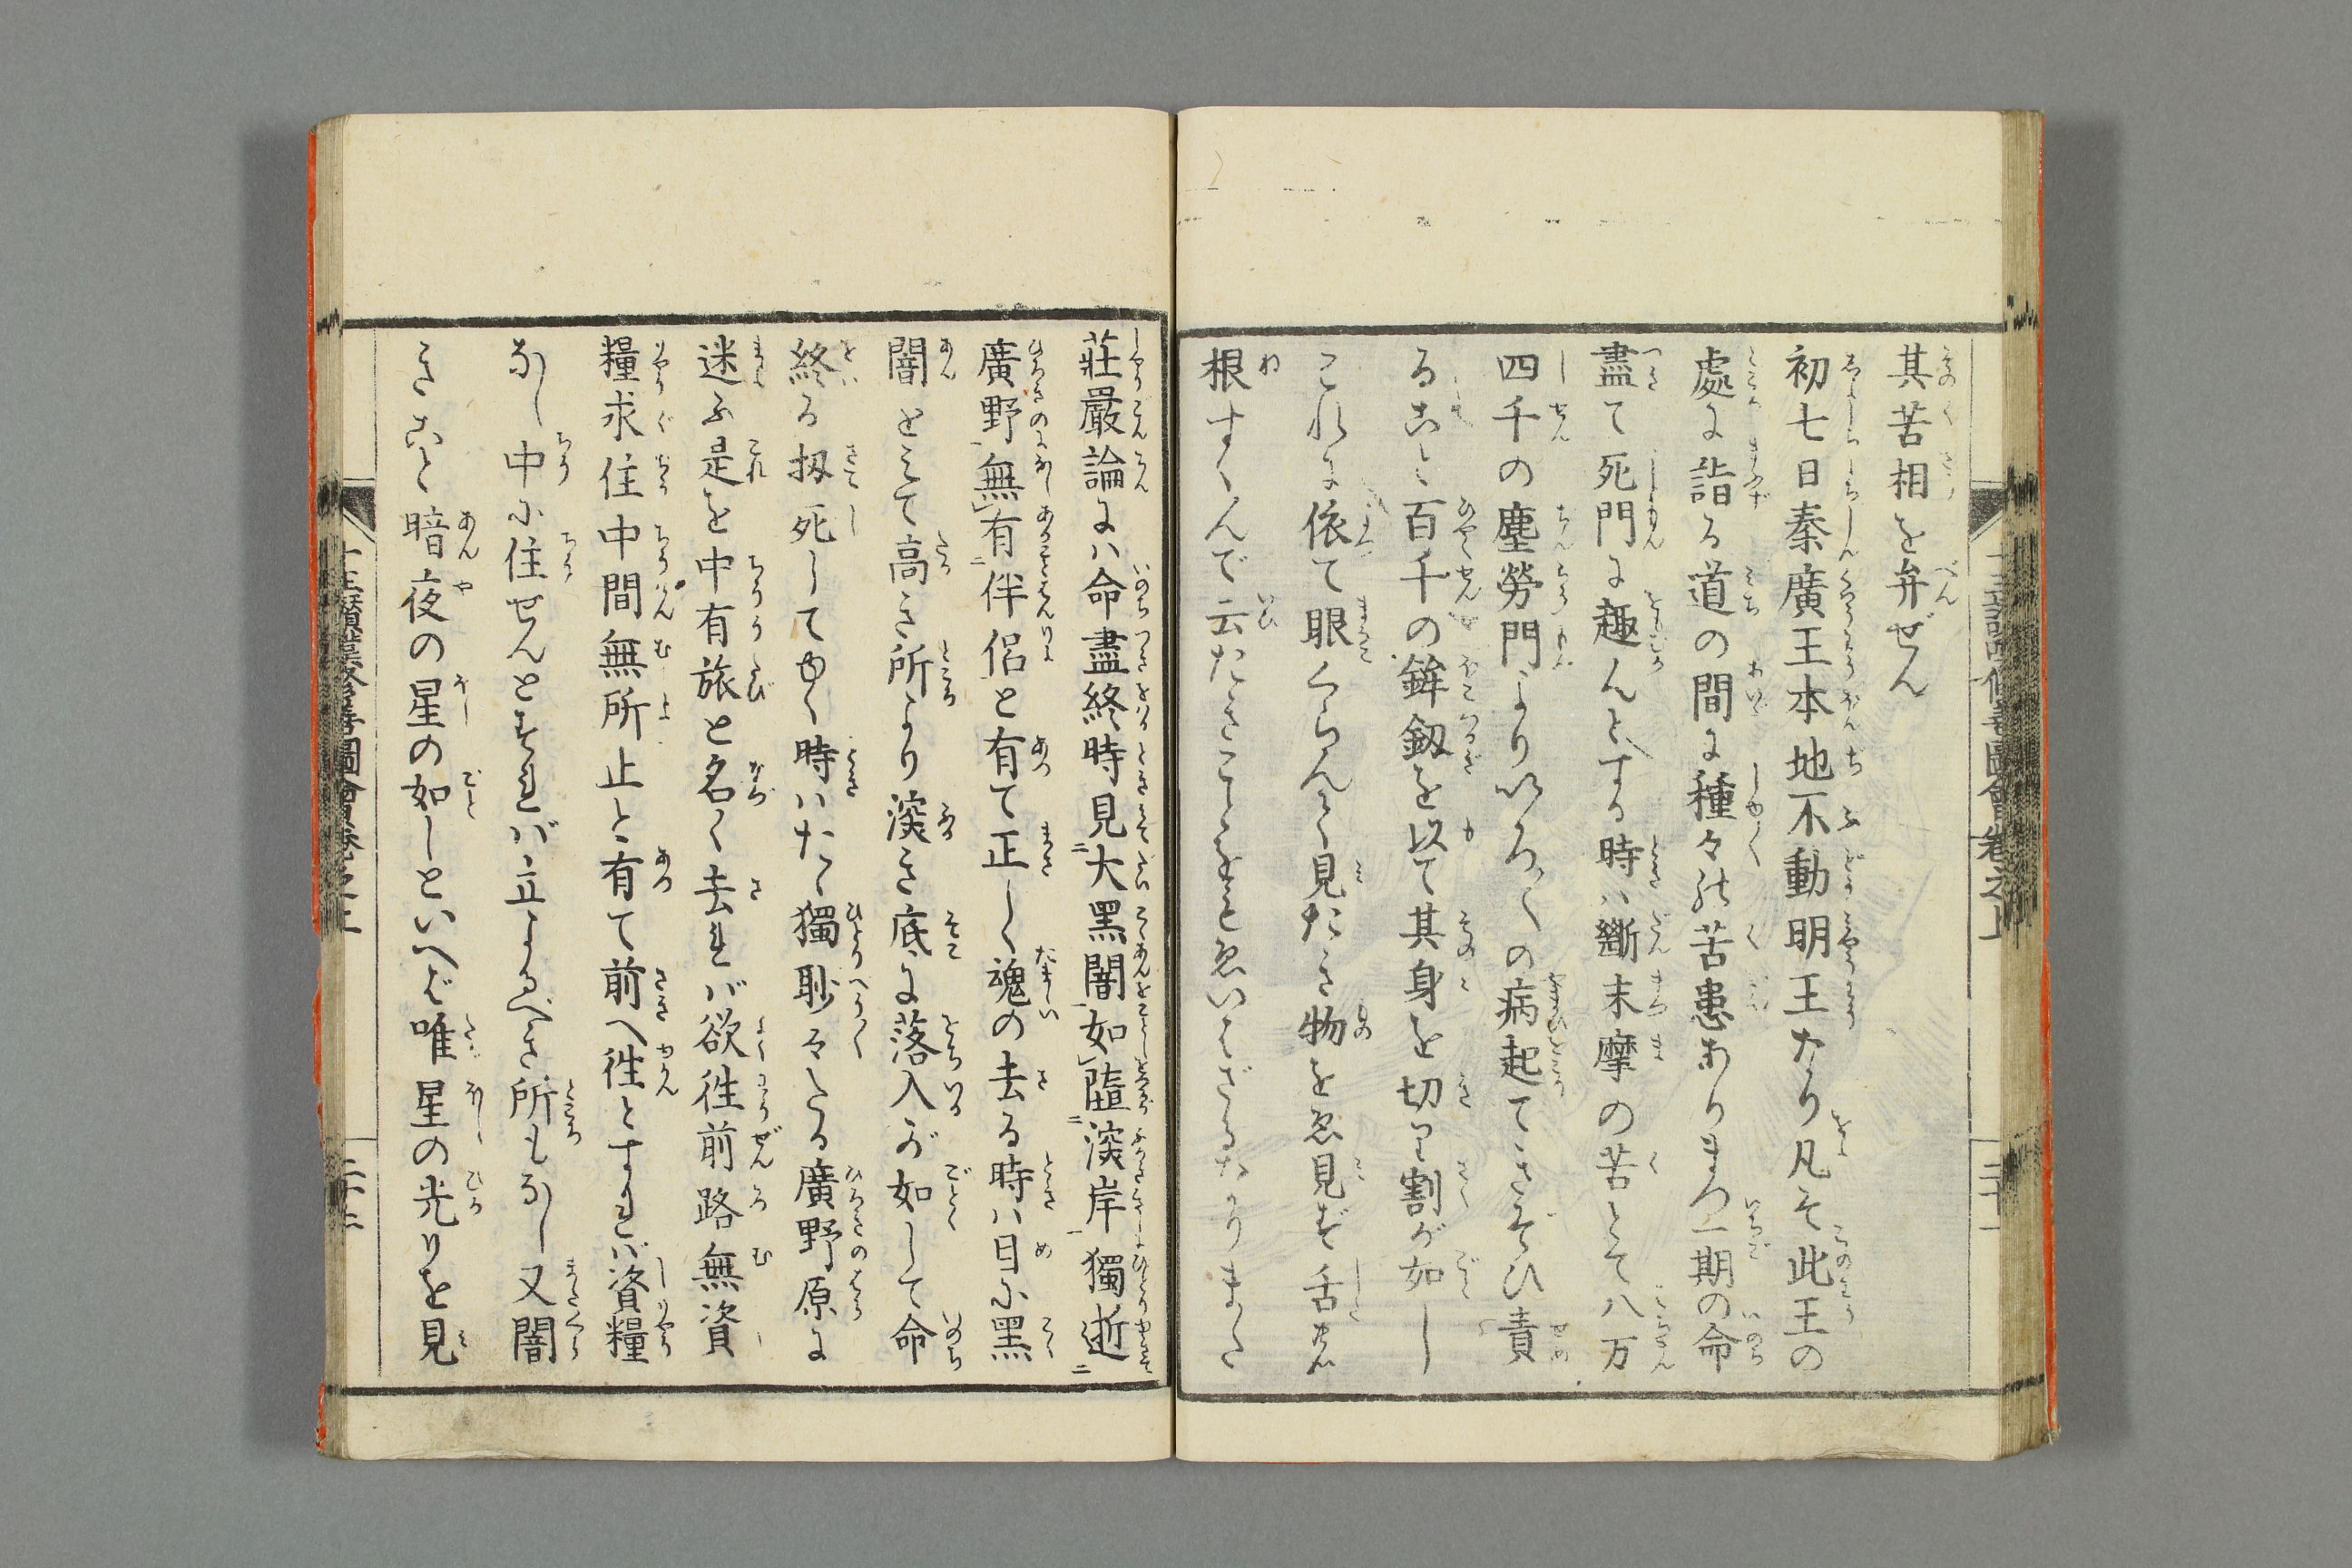 其苦相を弁ぜん
初七日秦廣王本地不動明王なり凡そ此王の
處に詣る道の間に種々の苦患ありまづ一期の命
盡て死門に趣んとする時ハ斷末摩の苦とて八万
四千の塵勞門よりいろ〱の病起てきそひ責
ること百千の鉾釼を以て其身を切り割が如し
これに依て眼くらんで見たき物を得見ず舌の
根すくんで云たきことをも得いはざるなりまた
莊嚴論にハ命盡終時見大黑闇如墮深岸獨逝
廣野無有伴侶と有て正しく魂の去る時ハ目に黑
闇をみて高き所より深き底に落入が如して命
終る扨死してゆく時ハたゞ獨渺々たる廣野原に
迷ふ是を中有旅と名く去れバ欲往前路無資
糧求住中間無所止と有て前へ往とすれバ資糧
なし中に住せんとすれバ立よるべき所もなし又闇
きこと暗夜の星の如しといへど唯星の光りを見